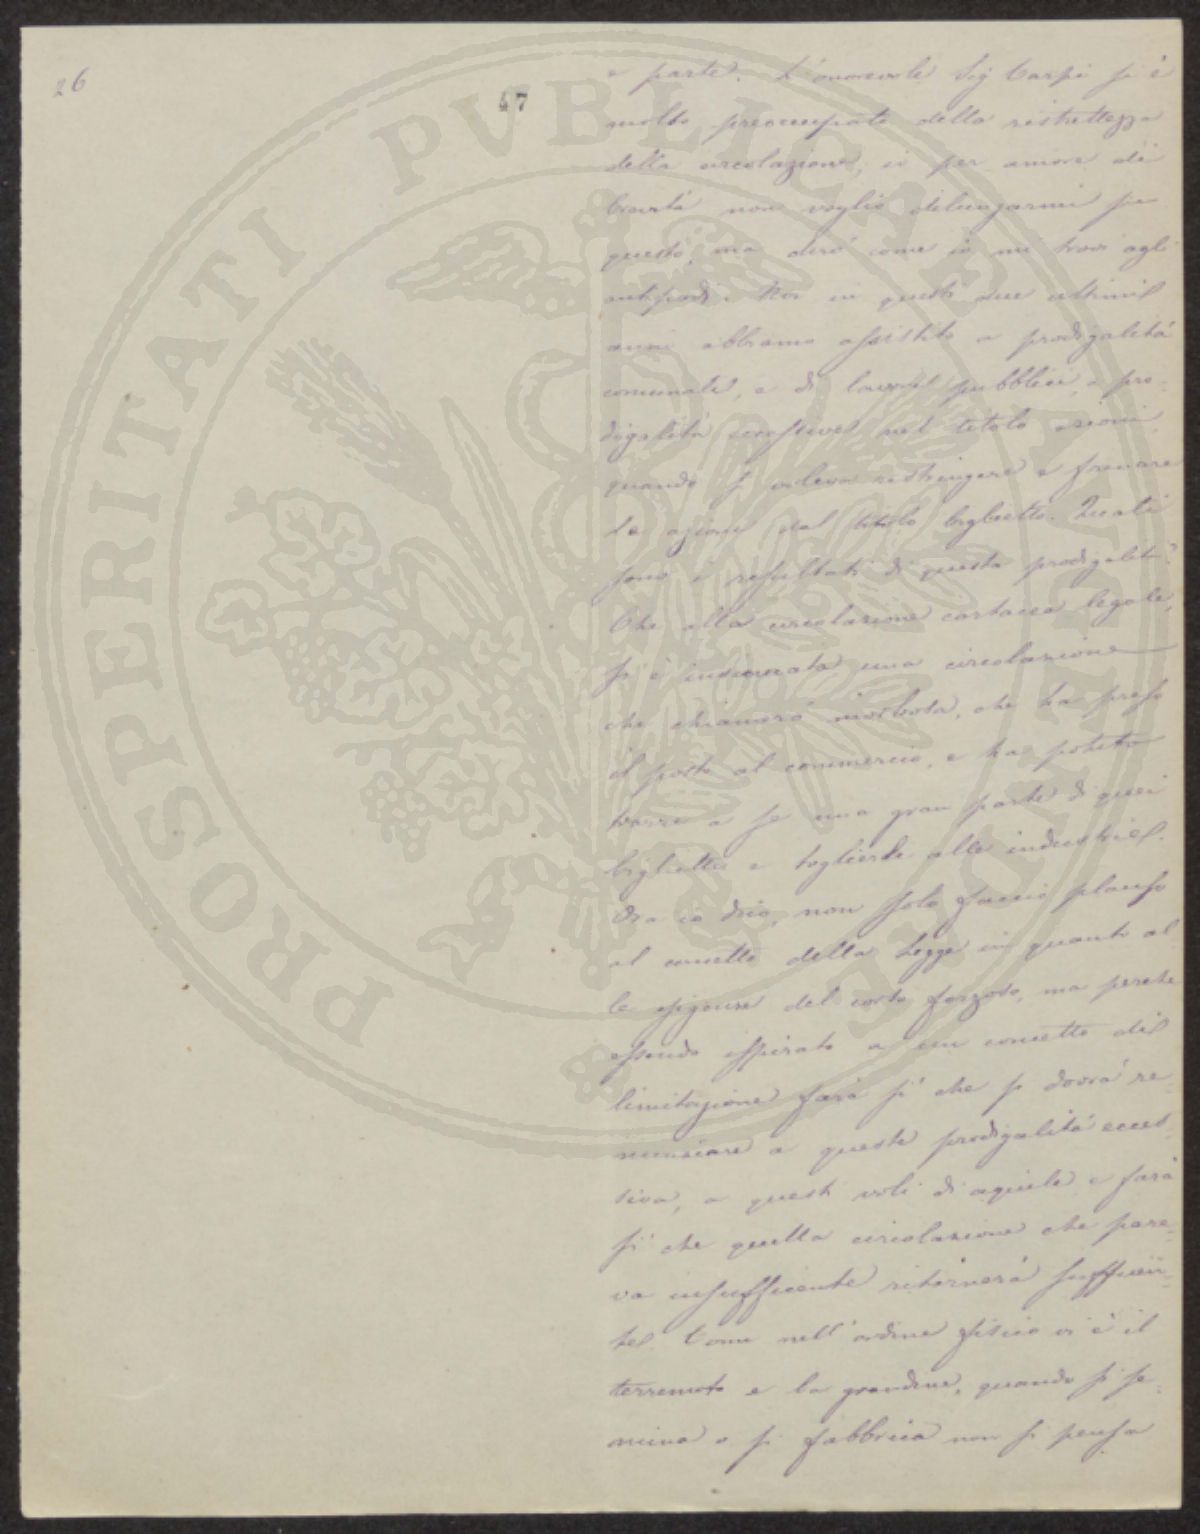 26
47
e parte. L'onorevole Sig Carpi si è
molto preoccupato della ristrettezza
della circolazione, io per amore di
brevità non voglio dilungarmi su
questo, ma dirò come io mi trovi agli
antipodi. Noi in questi due ultimi
anni abbiamo assistito a prodigalità
comunali, e di lavori pubblici, a pro-
digalità eccessive nel titolo azioni,
quando si voleva restringere e frenare
le azioni nel titolo biglietto. Quali
sono i resultati di questa prodigalità?
Che alla circolazione cartacea legale,
si è innamorata una circolazione
che chiamerò morbosa, che ha preso
il posto al commercio, e ha potuto
trarre a se una gran parte di quei
biglietti e toglierle alle industrie.
Ora io dico, non solo faccio plauso
al concetto della Legge in quanto al
le esigenze del corso forzoso, ma perchè
essendo ispirato a un concetto di
limitazione farà sì che si dovrà re-
nunciare a queste prodigalità ecces-
siva, a questi voli di aquile e farà
sì che quella circolazione che pare-
va insufficiente ritornerà sufficien-
te. Come nell'ordine fisico vi è il
terremoto e la grandine, quando si se-
mina o si fabbrica non si pensa
PROSPERITATI PVBLICAE